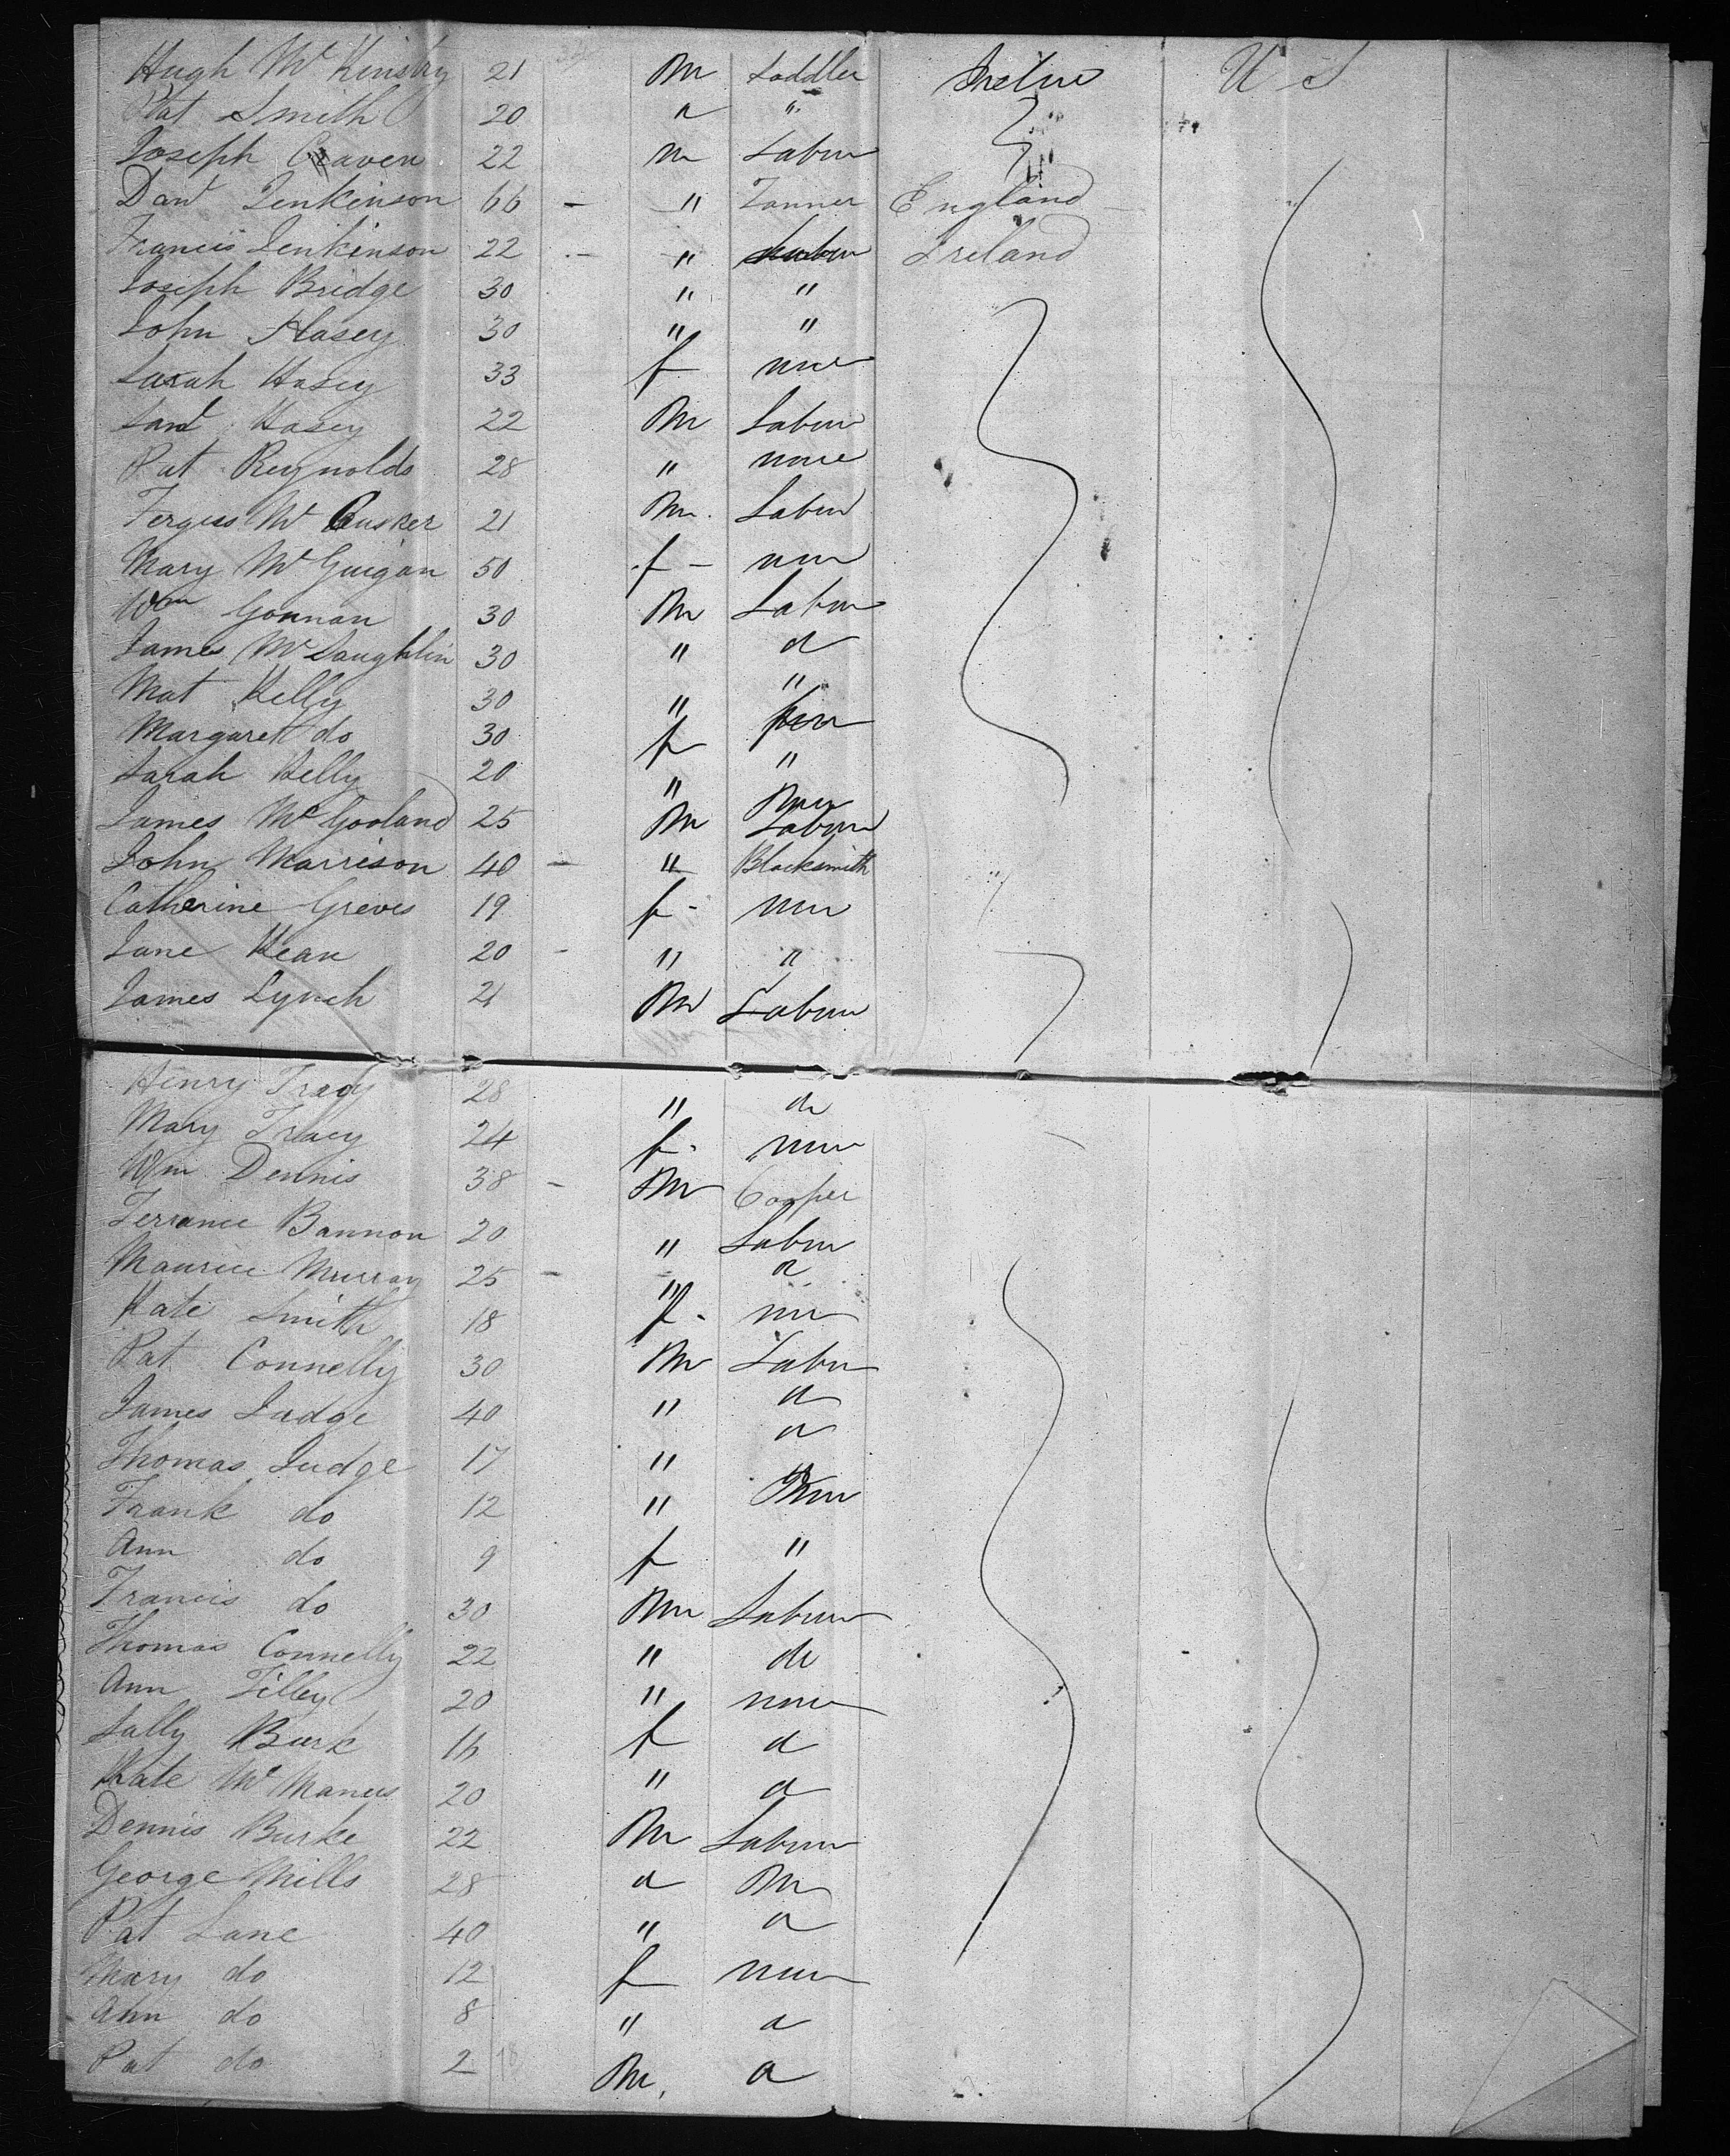 Hugh Mc Kinstry 21 M Saddler U S
Pat Smith 20 " "
Joseph Craven 22 m Labur
Danl Jenkinson 66 — " Tanner England
Francis Jenkinson 22 — " Ireland
Joseph Bridge 30 " "
John Hasey 30 " "
Sarah Hasey 33 f none
Hasey 22 M Labur
Pat Reynolds 28 " none
Fergus Mc Cusker 21 M. Labur
Mary Mc Guigan 50 f — none
Wm Gonnan 30 M Labur
James McLaughlin 30 " do
Mat Kelly 30 " "
Margaret do 30 f
Sarah Kelly 20 " "
James Mc Gooland 25 M Labur
John Marrison 40 — " Blacksmith
Catherine Greves 19 f - none
Jane Kean 20 — " "
James Lynch 21 M Labur
Henry Tracy 28 " do
Mary Tracy 24 f - none
Wm Dennis 38 — M Cooper
Terrance Bannon 20 " Labur
Maurice Murray 25 — " do
Kate Smith 18 f - none
Pat Connelly 30 M Labur
James Judge 40 " do
Thomas Judge 17 " do
Frank do 12 " None
Ann do 9 f "
Francis do 30 M Labur
Thomas Connelly 22 " do
Ann Tilley 20 " none
Sally Burk 16 f do
Kate Mc Manus 20 " do
Dennis Burke 22 M Labur
George Mills 28 do
Pat Lane 40 " do
Mary do 12 f none
Ann do 8 " do
Pat do 2 M. do